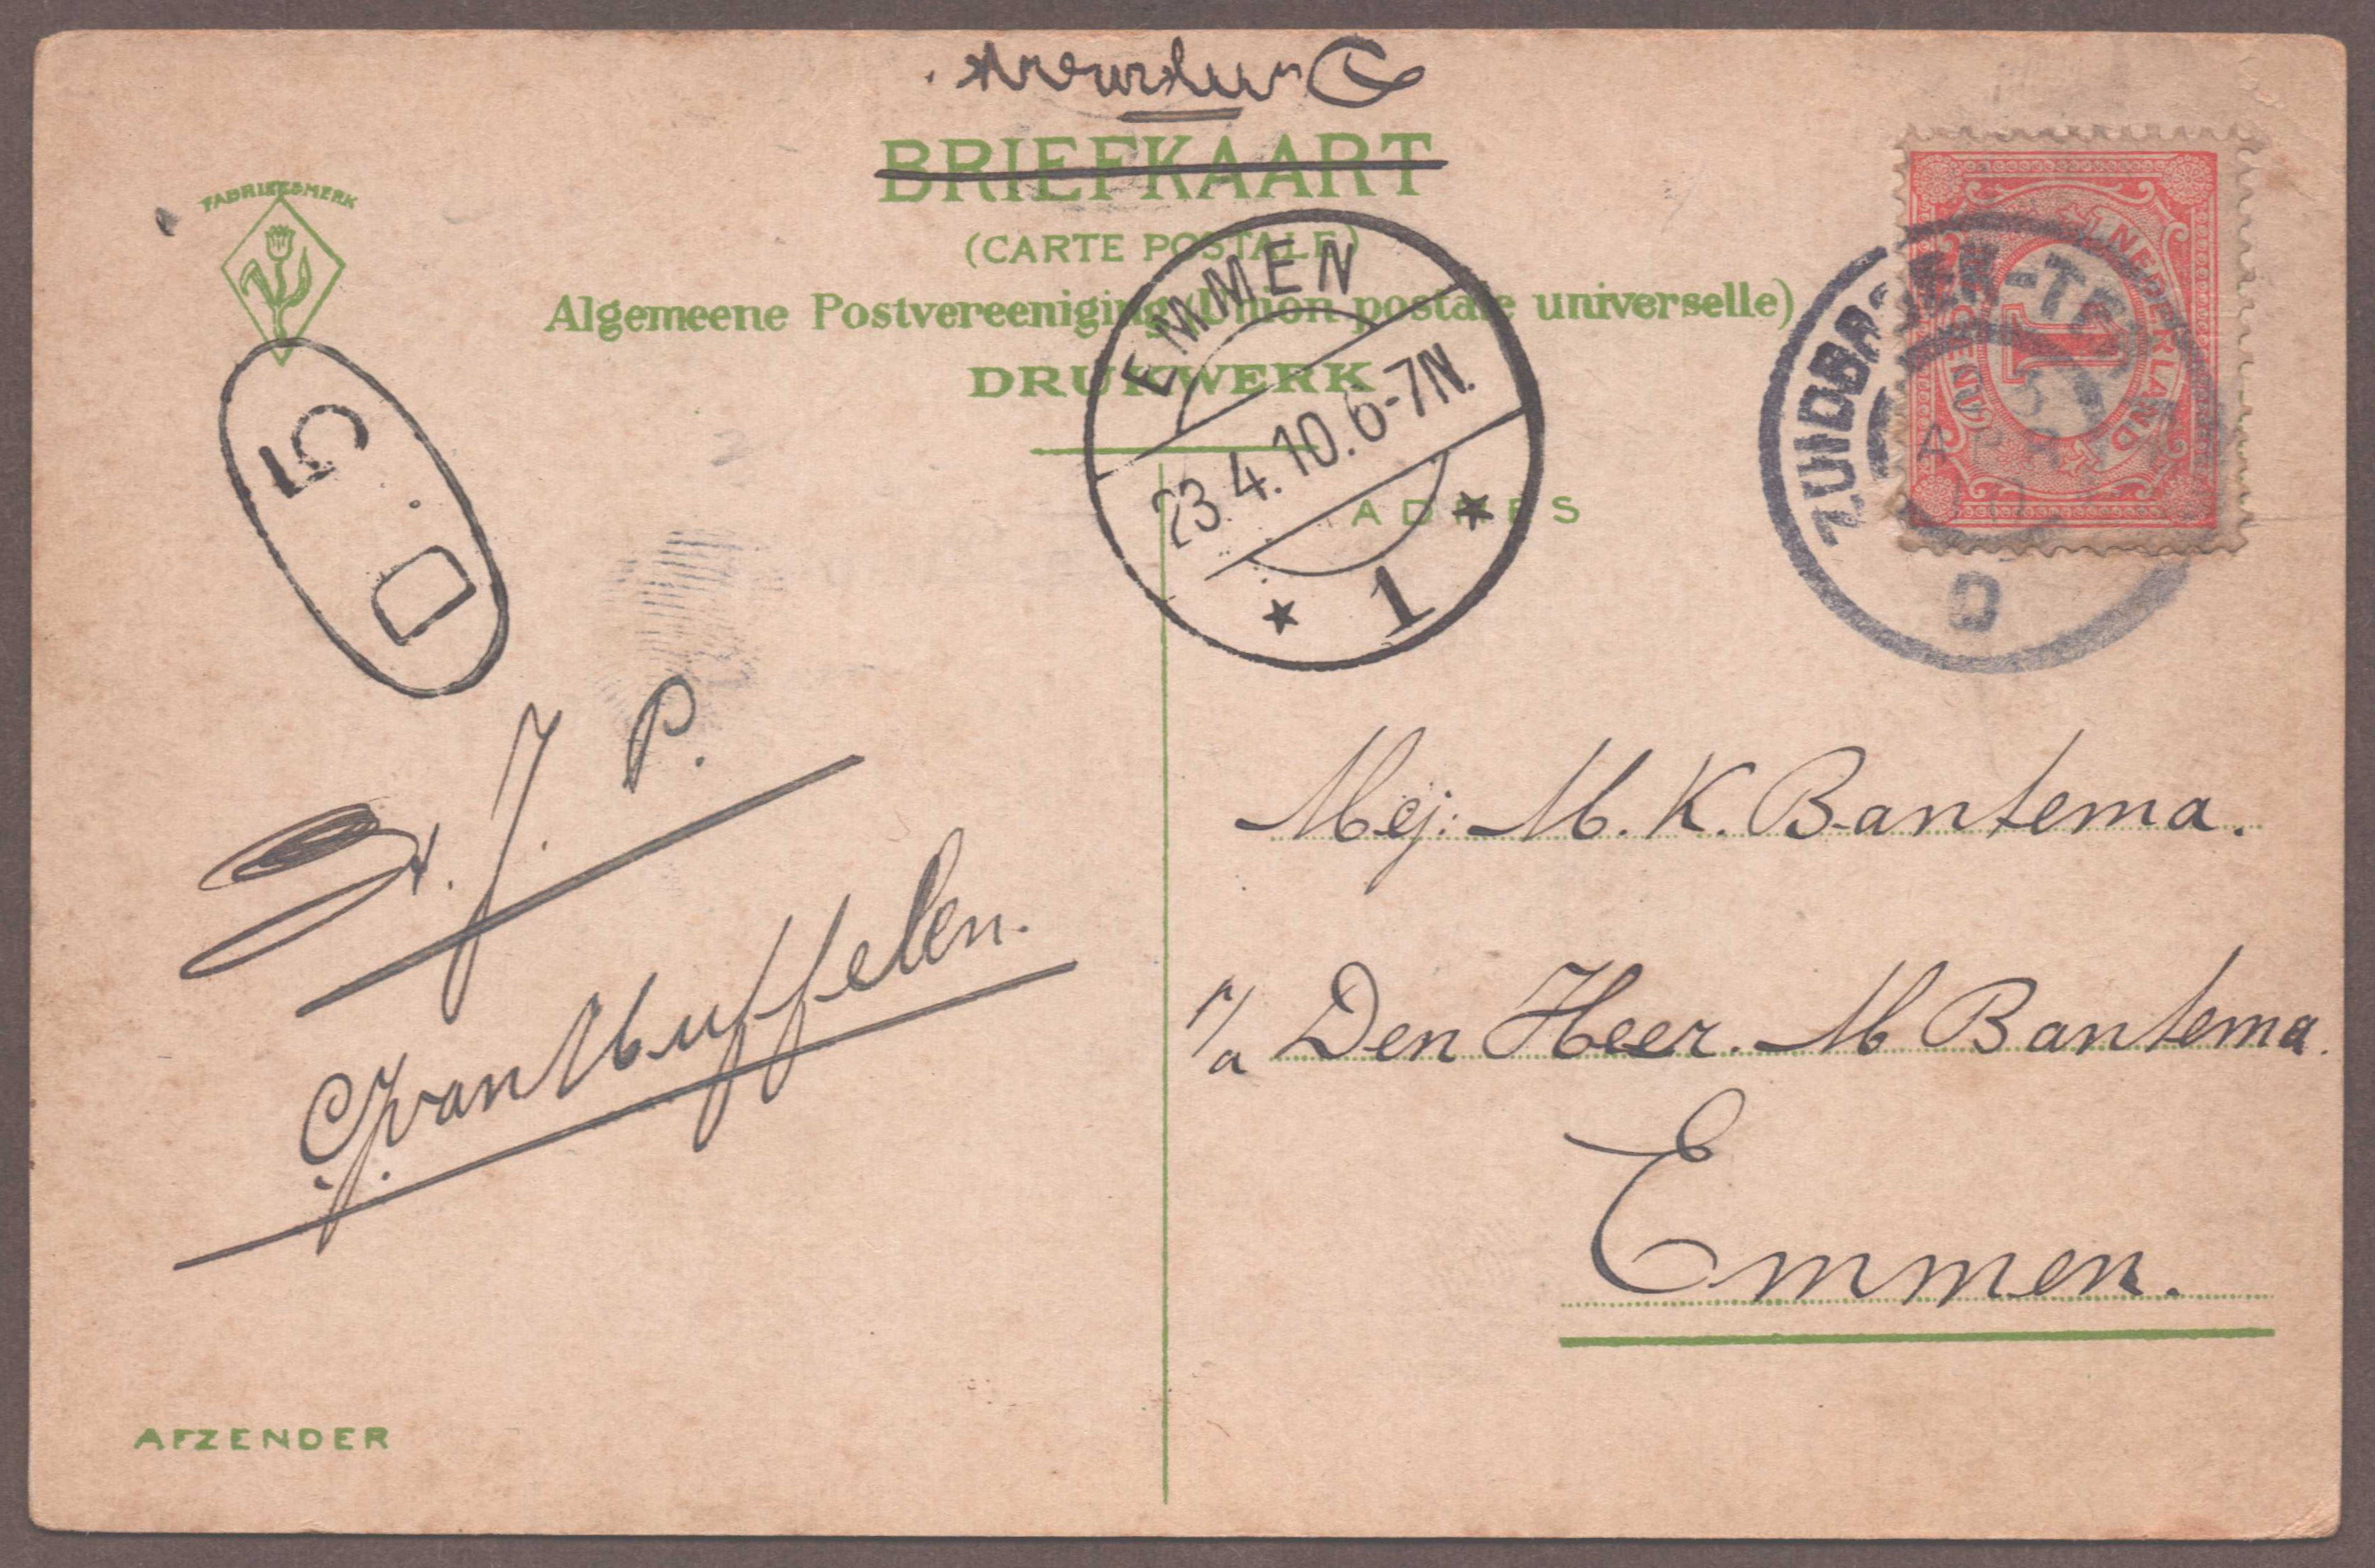 Drukwerk.
BRIEFKAART
(CARTE POSTALE)
Algemeene Postvereeniging (Union postale universelle)
DRUKWERK
FABRIEKSMERK
5 D
EMMEN
23.4.10.6-7N.
1
ADRES
NEDERLAND
1
D
J. P.
Mej: M. K. Bantema.
p/a Den Heer. M Bantema.
Emmen.
AFZENDER